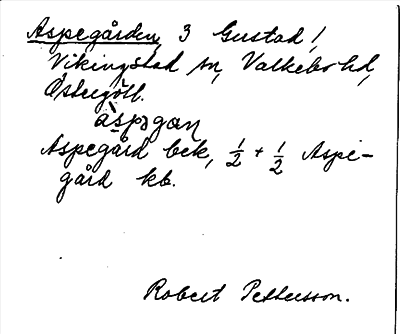 Aspegården, 3 Gustad,
Vikingstad sn, Valkebo hd,
Östergötl.
àspgan
Aspegård bek, ½ + ½ Aspe-
gård kb.
Robert Pettersson.